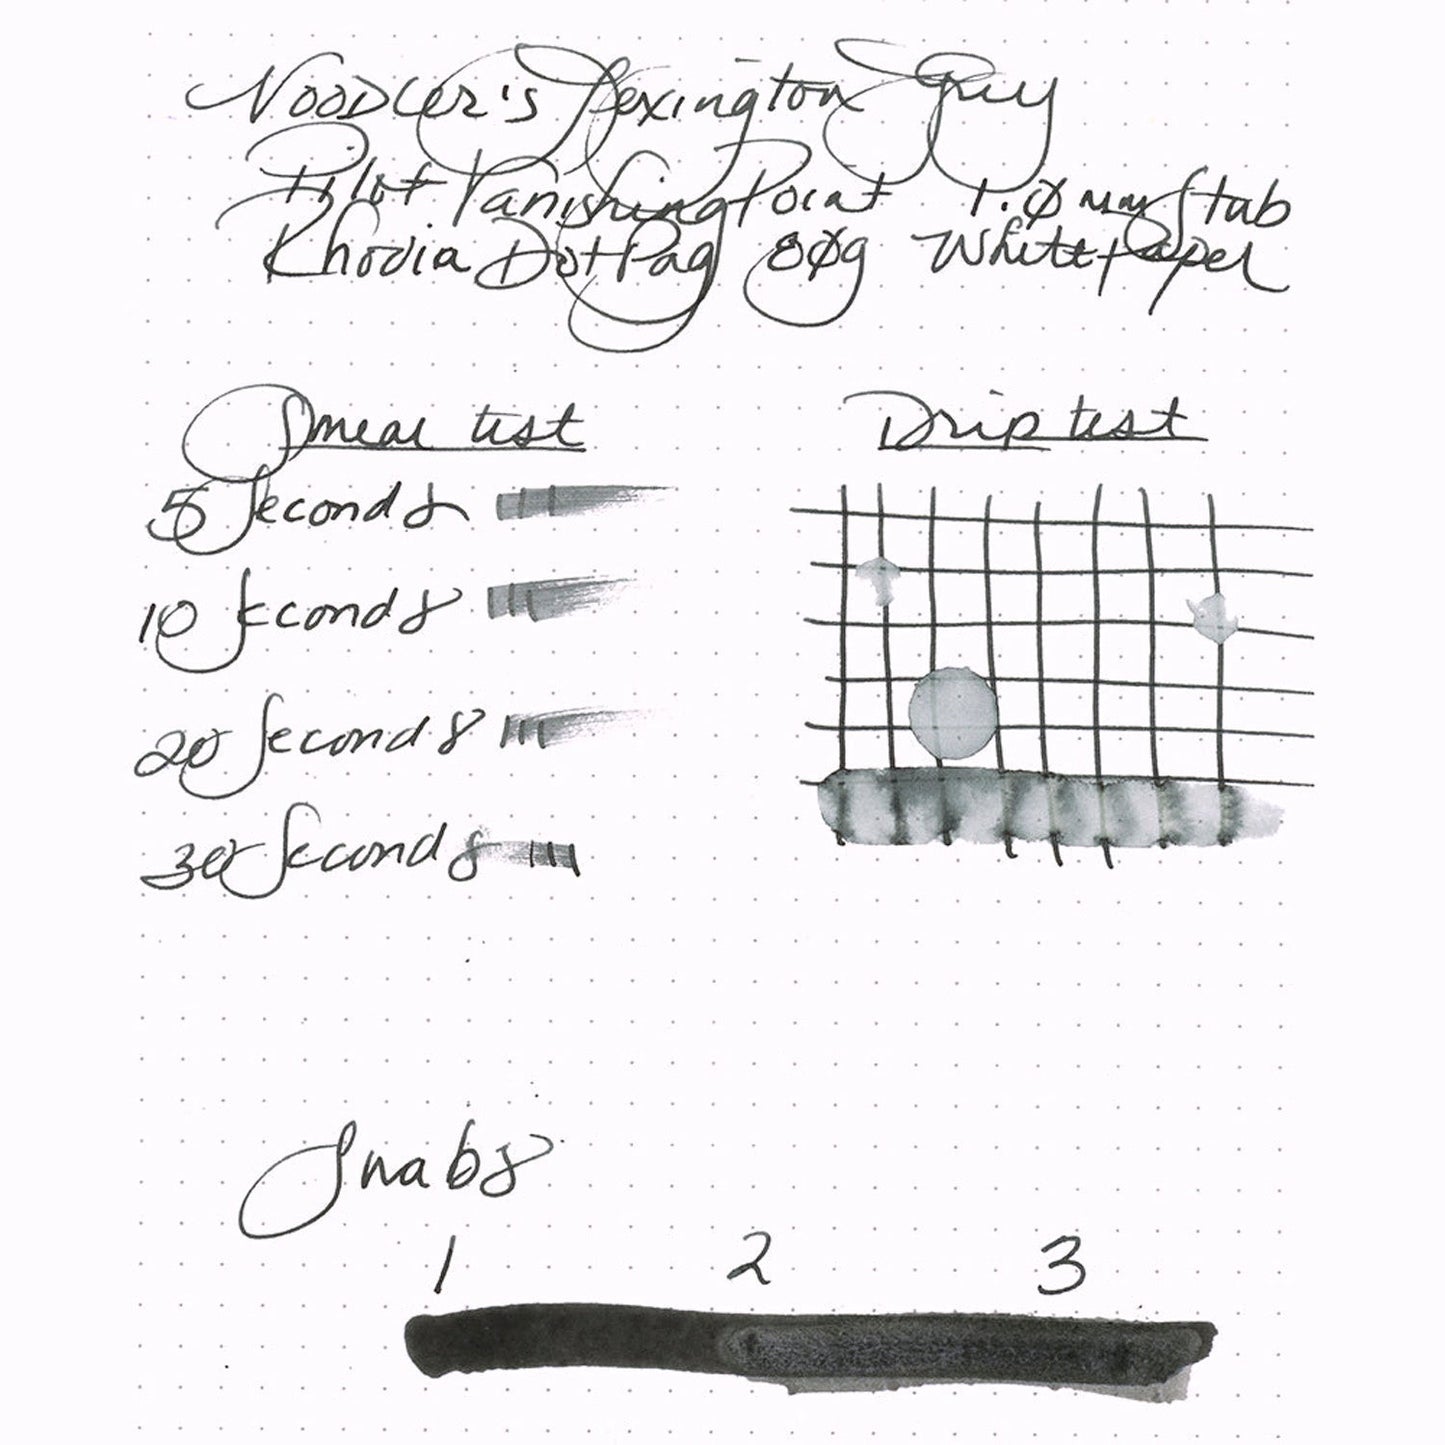 Noodler's Lexington Gray
Pilot Vanishing Point 1.0 mm Stub
Rhodia Dot Pad 80g White Paper
Smear test
5 Seconds
10 Seconds
20 Seconds
30 Seconds
Drip test
Swabs
1 2 3